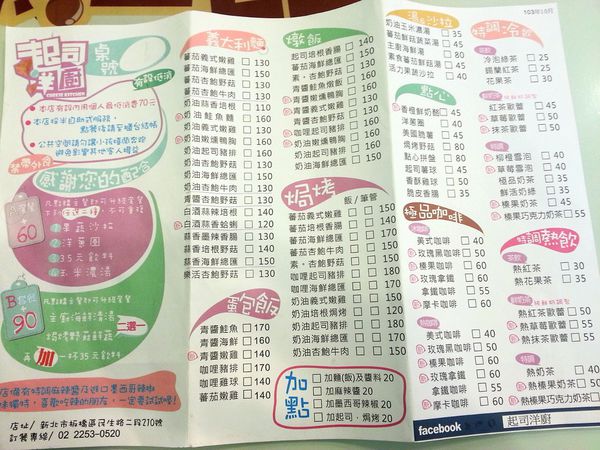 起司洋廚
CHEESE KITCHEN
桌號
有設低消
本店每設內用個人最低消費70元
本店採半自助式服務，
點餐後請至櫃台結帳
禁帶外食
感謝您的配合
A套餐 + 60
1 果蔬沙拉
2 洋蔥圈
3 35元飲料
4 玉米濃湯
B套餐 + 90
主廚海鮮清湯
焗烤野菇鮮蔬
二選一
再加一杯35元飲料
店備有特調麻辣醬及進口墨西哥辣椒
味獨特，喜歡吃辣的朋友，一定要試試喔！
店址/ 新北市板橋區民生路二段210號
訂餐專線/ 02 2253-0520
義大利麵
蕃茄義式嫩雞 130
蕃茄海鮮總匯 130
蕃茄培根野菇 130
素。杏鮑野菇 130
蕃茄杏鮑牛肉 130
奶油蒜香培根 110
奶油鮭魚麵 160
奶油義式嫩雞 130
奶油嫩燻鴨胸 130
奶油起司豬排 130
奶油海鮮總匯 130
奶油杏鮑野菇 130
奶油杏鮑牛肉 130
白酒蒜辣培根 140
白酒蒜香蛤蜊 120
蒜香墨辣香腸 130
蒜香培根野菇 130
蒜香海鮮總匯 130
樂活杏鮑野菇 130
蛋包飯
青醬鮭魚 170
青醬海鮮 160
青醬嫩雞 160
咖哩豬排 170
咖哩雞球 170
蕃茄嫩雞 160
燉飯
起司培根香腸 140
蕃茄海鮮總匯 140
素。杏鮑野菇 140
青醬鮭魚燉飯 160
青醬嫩燻鴨胸 140
青醬海鮮總匯 140
咖哩起司豬排 140
奶油嫩燻鴨胸 140
奶油義式嫩雞 140
奶油杏鮑牛肉 140
素。奶油野菇 140
奶油起司豬排 140
奶油海鮮總匯 140
焗烤 飯/筆管
蕃茄義式嫩雞 150
蕃茄培根香腸 150
蕃茄海鮮總匯 150
蕃茄杏鮑牛肉 150
素。杏鮑野菇 150
咖哩起司豬排 150
咖哩海鮮總匯 150
奶油義式嫩雞 150
奶油培根焗烤 150
奶油起司豬排 150
奶油海鮮總匯 150
奶油杏鮑牛肉 150
加點
加麵(飯)及醬料 20
加麻辣醬 20
加墨西哥辣椒 20
加起司，焗烤 20
湯&沙拉
奶油玉米濃湯 35
蕃茄鮮菇蔬菜湯 45
主廚海鮮湯 60
素食蕃茄鮮菇湯 45
活力果蔬沙拉 45
點心
香橙鮮奶酪 35
洋蔥圈 40
美國脆薯 45
焗烤野菇 80
點心拼盤 80
起司豬排 45
香酥雞球 50
脆皮香腸 35
極品咖啡
美式咖啡 40
玫瑰黑咖啡 50
榛果咖啡 60
玫瑰拿鐵 60
拿鐵咖啡 55
摩卡咖啡 60
美式咖啡 40
玫瑰黑咖啡 50
榛果咖啡 60
玫瑰拿鐵 60
拿鐵咖啡 55
摩卡咖啡 60
103年10月
特調·冷飲
茶飲
冷泡綠茶 25
錫蘭紅茶 30
花果茶 30
紅茶歐蕾 45
草莓歐蕾 50
抹茶歐蕾 50
特調
柳橙雪泡 40
草莓雪泡 40
極品奶茶 35
鮮泡奶綠 35
榛果奶茶 45
榛果巧克力奶茶 55
特調熱飲
茶飲
熱紅茶 30
熱花果茶 35
熱紅茶歐蕾 45
熱草莓歐蕾 55
熱抹茶歐蕾 55
特調
熱奶茶 40
熱榛果奶茶 50
熱榛果巧克力奶茶 55
facebook 起司洋廚